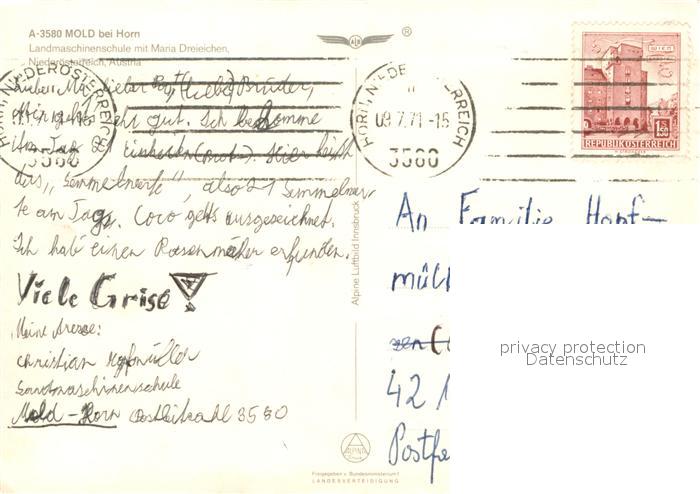 A-3580 MOLD bei Horn
Landmaschinenschule mit Maria Dreieichen,
Niederösterreich, Austria
®
HORN, NIEDERÖSTERREICH
3580
HORN, NIEDERÖSTERREICH
09.7.71-15
3580
WIEN
1.50
REPUBLIK ÖSTERREICH
liebe Brüder,
Mir geht's sehr gut. Ich bekomme
am Tag Einheiten (Brote). Hier heißt
das „Semmelwerte“, also 21 Semmelwer-
te am Tag. Coco geht's ausgezeichnet.
Ich hab einen Rasenmäher erfunden.
Viele Grüse!
Meine Adresse:
Christian Hopfmüller
Landmaschinenschule
Mold - Horn Postleitzahl 3580
Alpine Luftbild Innsbruck
An Familie Hopf-
müll
42
Postfa
privacy protection
Datenschutz
ALPINE
Freigegeben v. Bundesministerium f.
LANDESVERTEIDIGUNG